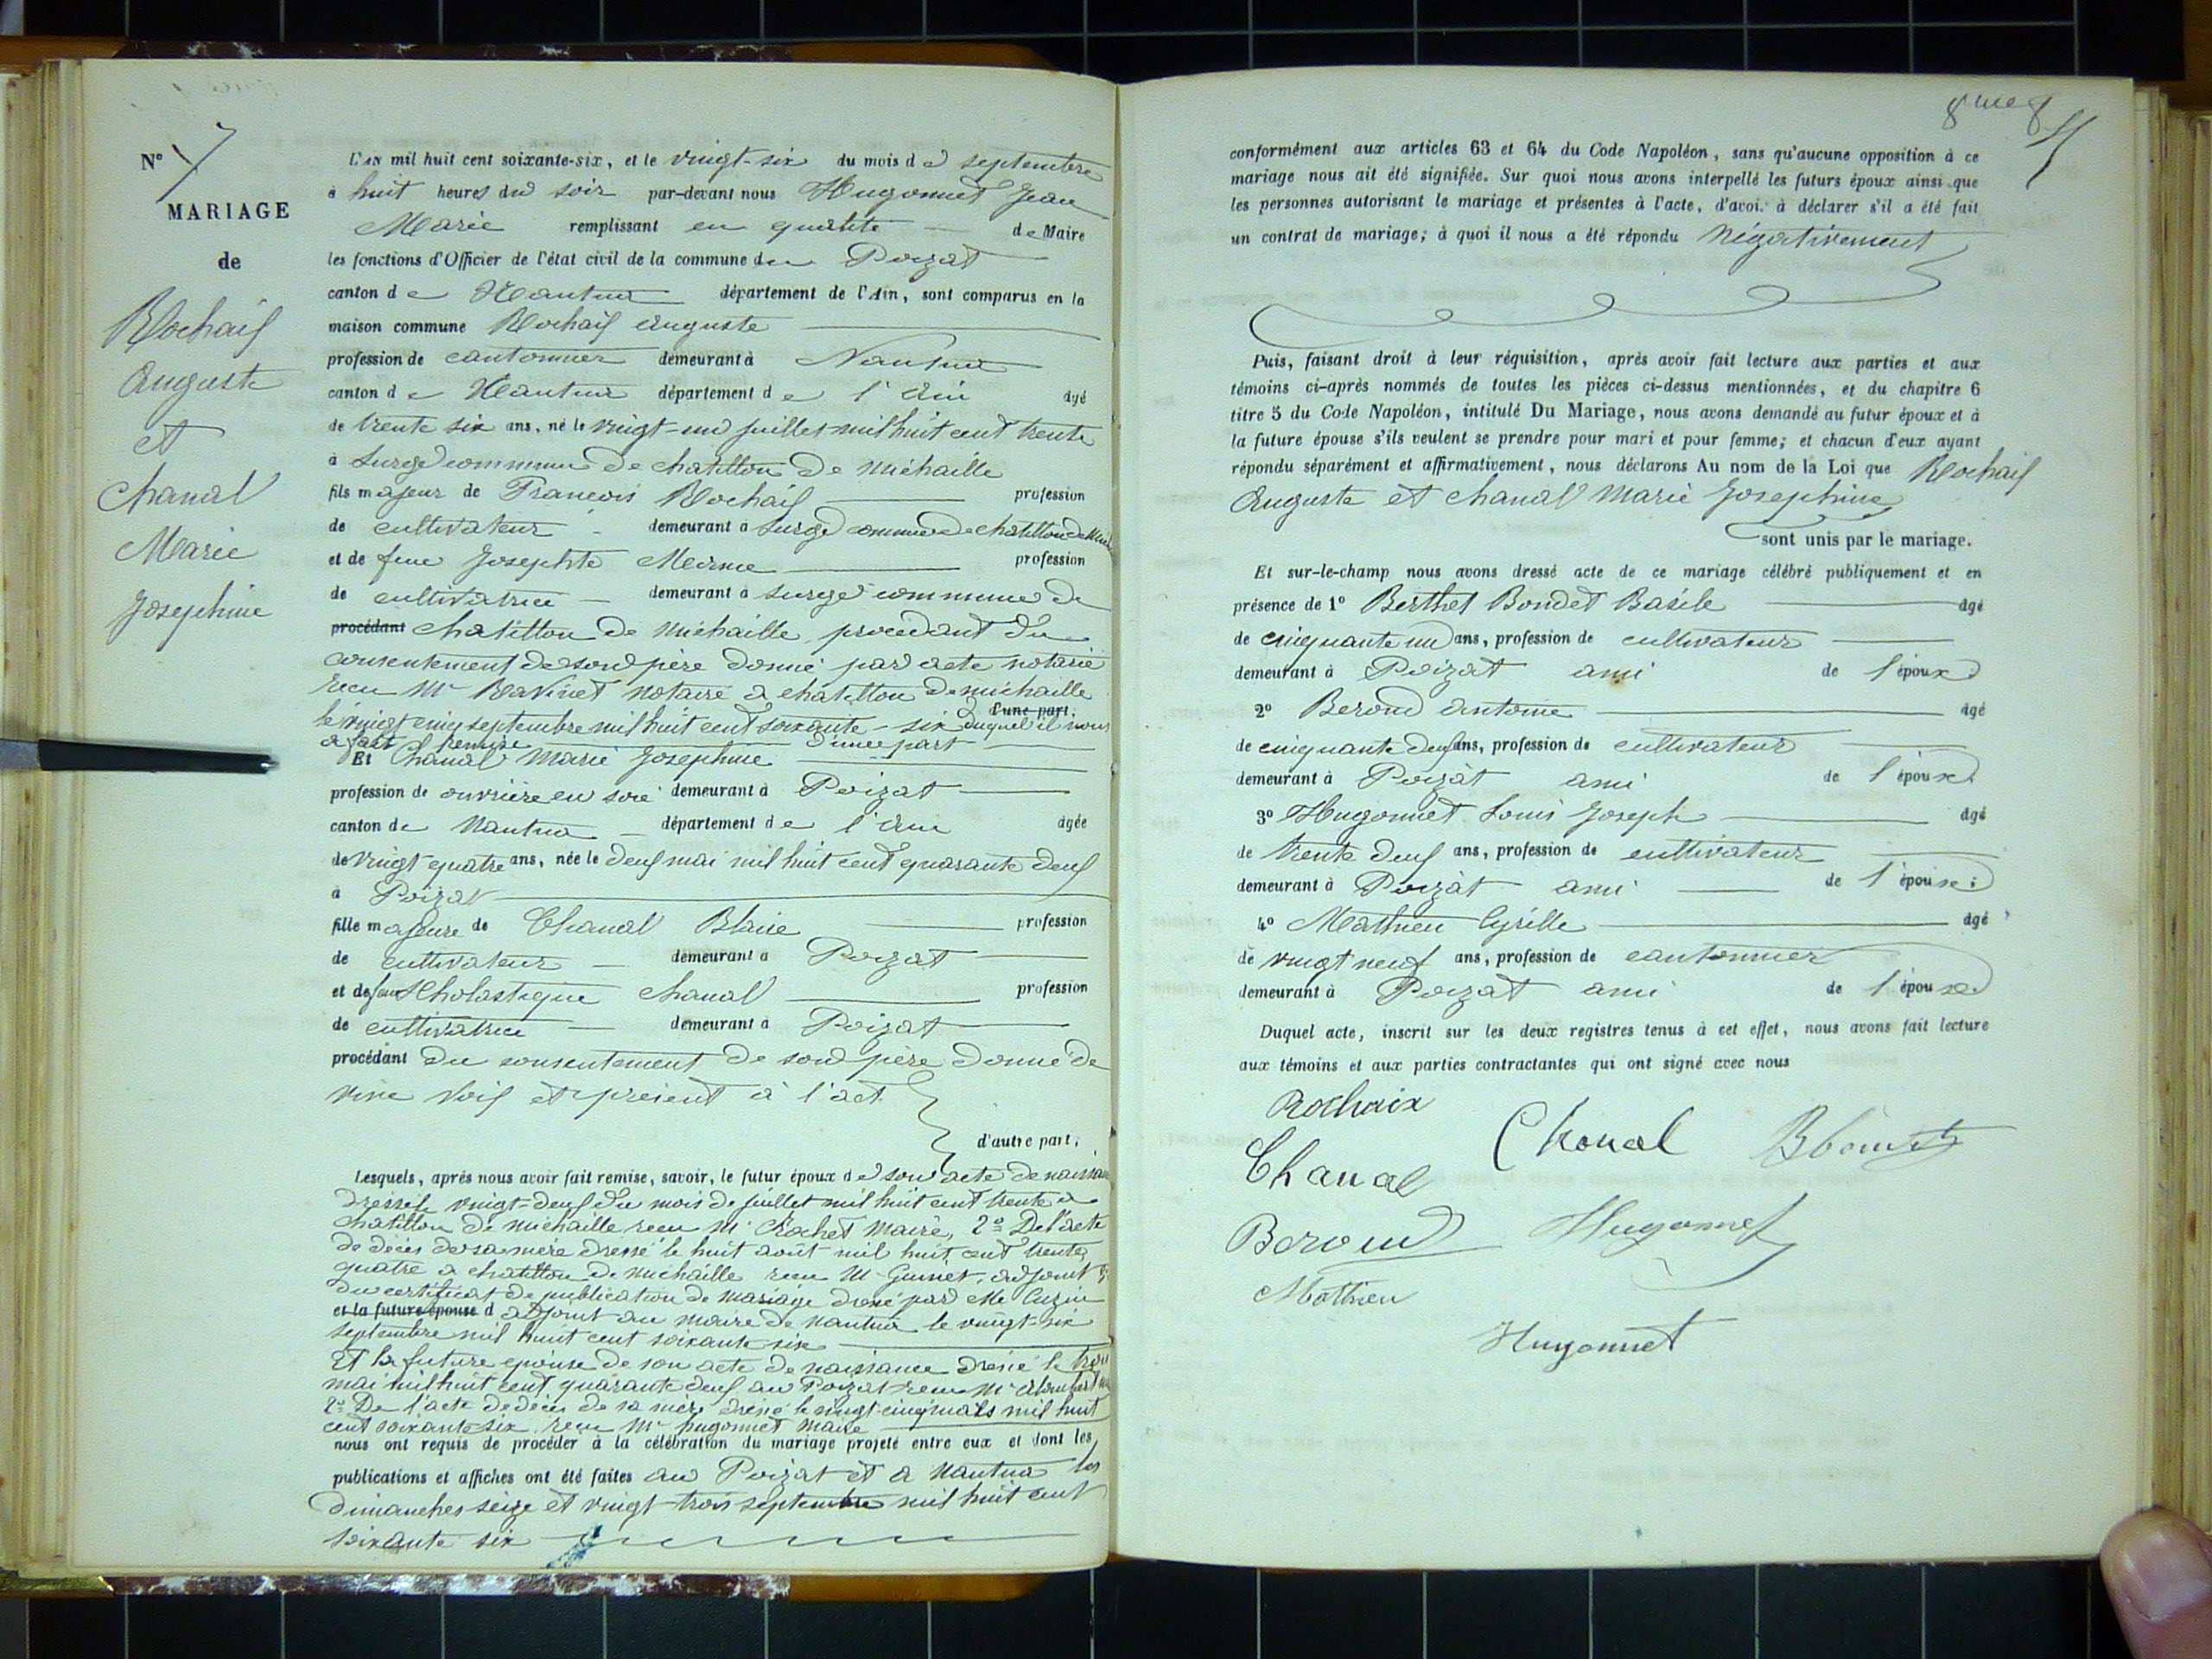 N° 7
MARIAGE
de
Rochaix
Auguste
et
Chanal
Marie
Josephine
L'an mil huit cent soixante-six, et le vingt-six du mois de septembre
à huit heures du soir par-devant nous Hugonnet Jean
Marie remplissant en qualité de Maire
les fonctions d'Officier de l'état civil de la commune du Poizat
canton de Nantua département de l'Ain, sont comparus en la
maison commune Rochaix Auguste
profession de cantonnier demeurant à Nantua
canton de Nantua département de l'Ain âgé
de trente six ans, né le vingt-un juillet mil huit cent trente
à Surge commune de chatillon de michaille
fils majeur de Francois Rochaix profession
de cultivateur demeurant à Surge commune de chatillon de Mich
et de feue Josephte Merme profession
de cultivatrice demeurant à Surge commune de
procédant chatillon de michaille, procedant du
consentement de son père donné par acte notarié
recu Mr Ravinet notaire a chatillon de michaille
d'une part,
le vingt cinq septembre mil huit cent soixante-six duquel il nous
a fait remise d'une part
Et Chanal Marie Josephine
profession de ouvrière en soie demeurant à Poizat
canton de Nantua département de l'Ain âgée
de vingt quatre ans, née le deux mai mil huit cent quarante deux
à Poizat
fille majeure de Chanal Blaise profession
de cultivateur demeurant à Poizat
et de feue Scholastique Chanal profession
de cultivatrice demeurant à Poizat
procédant du consentement de son père donné de
vive voix et présent à l'act
d'autre part,
Lesquels, après nous avoir fait remise, savoir, le futur époux de son acte de naissance
dressé le vingt-deux du mois de juillet mil huit cent trente a
chatillon de michaille recu Mr Rochet Maire, 2° De l'acte
de décès de sa mère dressé le huit août mil huit cent trente
quatre a chatillon de michaille recu Mr Guinet, adjoint 3°
du certificat de publication de mariage dressé par Me Cuzin
et la future épouse d adjoint au maire de Nantua le vingt-six
septembre mil huit cent soixante six
Et la future epouse de son acte de naissance dressé le trois
mai mil huit cent quarante deux au Poizat recu Mr
2° De l'acte de décès de sa mère dressé le vingt-cinq mars mil huit
cent soixante six recu Mr hugonnet Maire
nous ont requis de procéder à la célébration du mariage projeté entre eux et dont les
publications et affiches ont été faites au Poizat et a Nantua les
dimanches seize et vingt-trois septembre mil huit cent
soixante six
8
conformément aux articles 63 et 64 du Code Napoléon, sans qu'aucune opposition à ce
mariage nous ait été signifiée. Sur quoi nous avons interpellé les futurs époux ainsi que
les personnes autorisant le mariage et présentes à l'acte, d'avoir à déclarer s'il a été fait
un contrat de mariage; à quoi il nous a été répondu Négativement
Puis, faisant droit à leur réquisition, après avoir fait lecture aux parties et aux
témoins ci-après nommés de toutes les pièces ci-dessus mentionnées, et du chapitre 6
titre 5 du Code Napoléon, intitulé Du Mariage, nous avons demandé au futur époux et à
la future épouse s'ils veulent se prendre pour mari et pour femme; et chacun d'eux ayant
répondu séparément et affirmativement, nous déclarons Au nom de la Loi que Rochaix
Auguste et Chanal Marie Josephine
sont unis par le mariage.
Et sur-le-champ nous avons dressé acte de ce mariage célébré publiquement et en
présence de 1° Berthet Bondet Basile âgé
de cinquante un ans, profession de cultivateur
demeurant à Poizat ami de l'époux
2° Beroud Antoine âgé
de cinquante deux ans, profession de cultivateur
demeurant à Poizat ami de l'époux
3° Hugonnet Louis Joseph âgé
de trente deux ans, profession de cultivateur
demeurant à Poizat ami de l'épouse
4° Mathieu Cyrille âgé
de vingt neuf ans, profession de cantonnier
demeurant à Poizat ami de l'épouse
Duquel acte, inscrit sur les deux registres tenus à cet effet, nous avons fait lecture
aux témoins et aux parties contractantes qui ont signé avec nous
Rochaix
Chanal
Chanal
Beroud
Hugonnet
Mathieu
Hugonnet